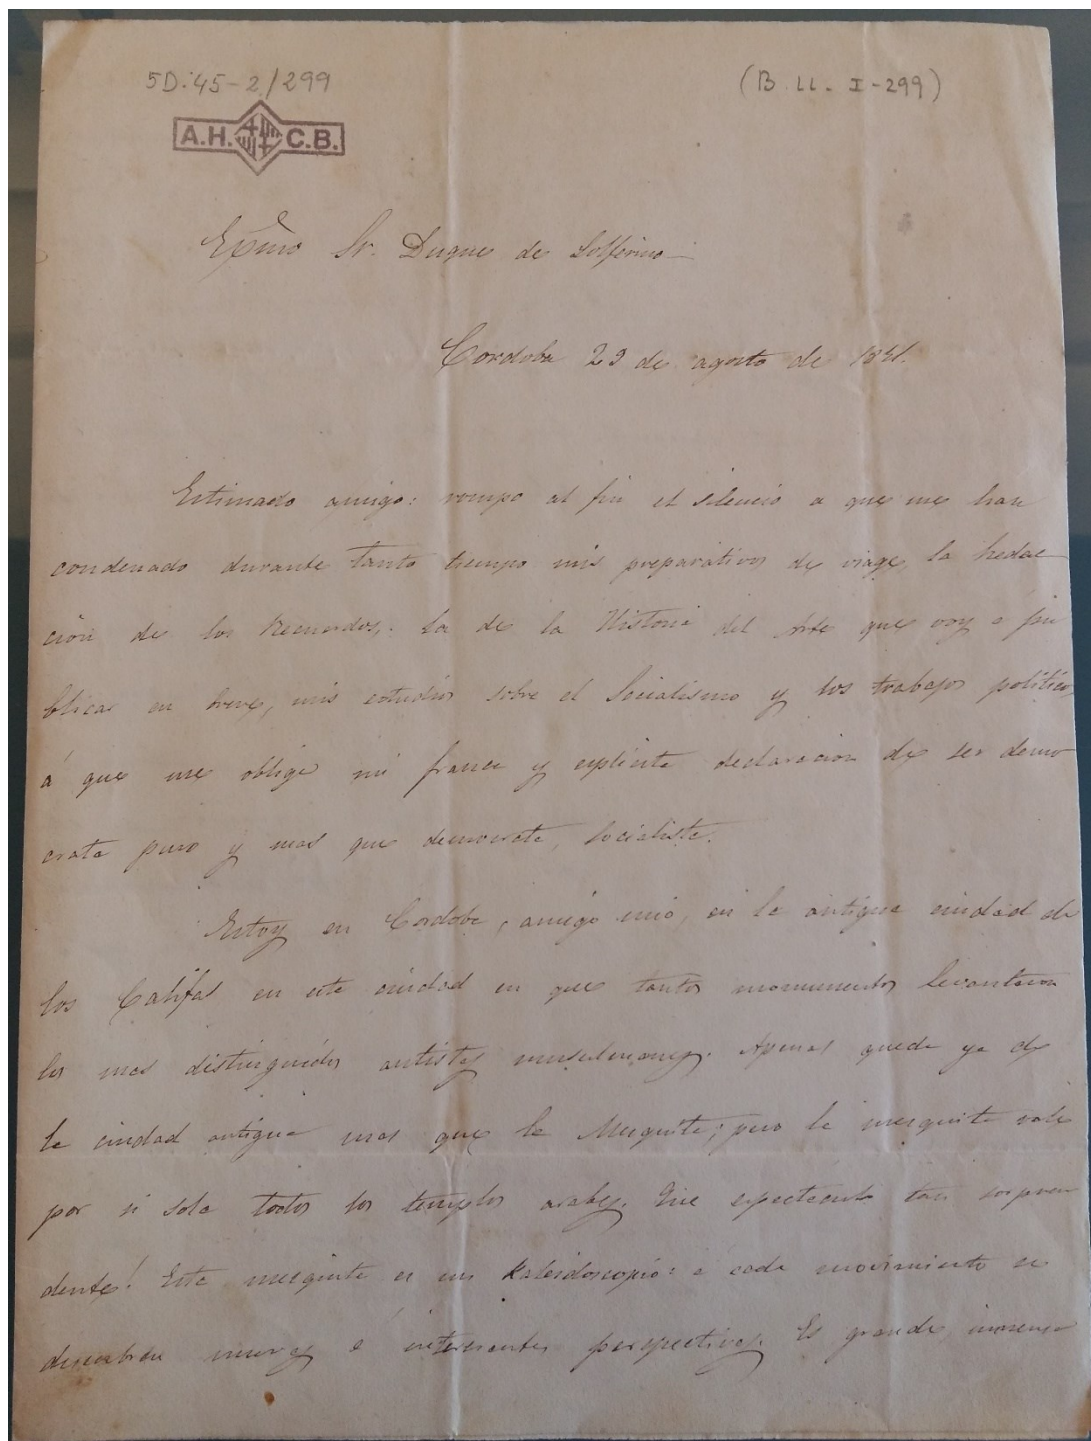 5D.45-2/299
(B. LL. I-299)
A.H. C.B.
Exmo Sr. Duque de Solferino
Cordoba 29 de agosto de 1851.
Estimado amigo: rompo al fin el silencio a que me han
condenado durante tanto tiempo mis preparativos de viage, la Redac
cion de los Recuerdos, la de la Historia del Arte que voy a pu
blicar en breve, mis estudios sobre el Socialismo y los trabajos politicos
á que me obliga mi franca y esplicita declaracion de ser demo
crata puro y mas que democrata, socialista.
Estoy en Cordoba, amigo mio, en la antigua ciudad de
los Califas en esta ciudad en que tantos monumentos levantaron
los mas distinguidos artistas musulmanes. Apenas queda ya de
la ciudad antigua mas que la Mezquita; pero la mezquita vale
por si sola todos los templos arabes. Que espectaculo tan sorpren
dente! Esta mezquita es un kaleidoscopio: a cada movimiento se
descubren nuevas é interesantes perspectivas. Es grande, inmensa